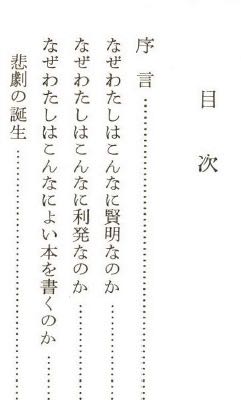 目次
序言……………………
なぜわたしはこんなに賢明なのか………
なぜわたしはこんなに利発なのか………
なぜわたしはこんなによい本を書くのか……
悲劇の誕生……………………